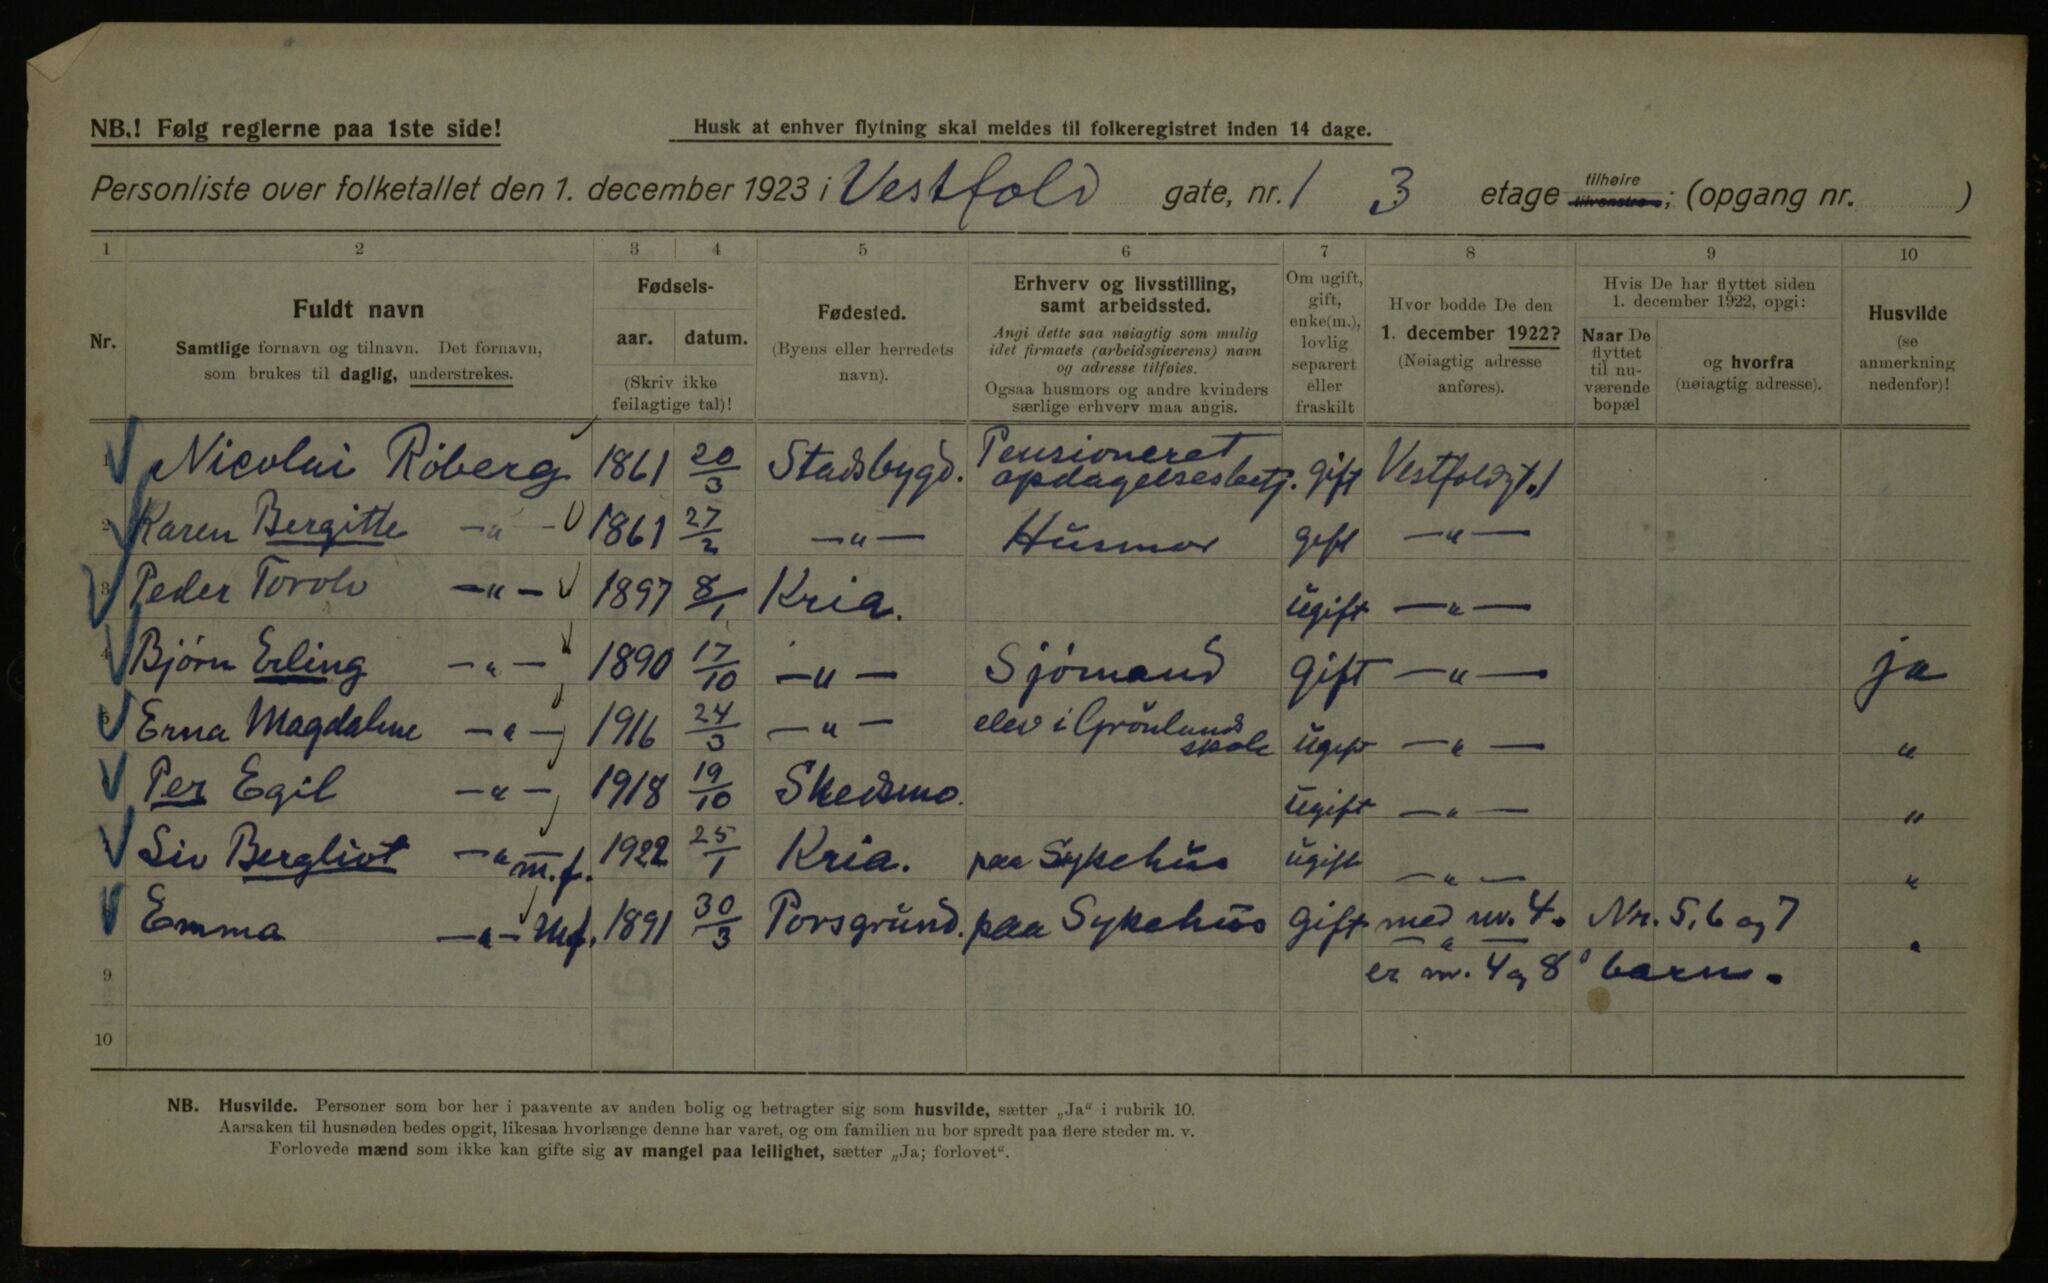 NB.! Følg reglerne paa 1ste side!
Husk at enhver flytning skal meldes til folkeregistret inden 14 dage.
Personliste over folketallet den 1. december 1923 i Vestfold gate, nr. 1 3 etage tilhøire tilvenstre; (opgang nr. )
1 2 3 4 5 6 7 8 9 10
Nr.
Fuldt navn
Samtlige fornavn og tilnavn. Det fornavn,
som brukes til daglig, understrekes.
Fødsels-
aar. datum.
(Skriv ikke
feilagtige tal)!
Fødested.
(Byens eller herredets
navn).
Erhverv og livsstilling,
samt arbeidssted.
Angi dette saa nøiagtig som mulig
idet firmaets (arbeidsgiverens) navn
og adresse tilføies.
Ogsaa husmors og andre kvinders
særlige erhverv maa angis.
Om ugift,
gift,
enke(m.),
lovlig
separert
eller
fraskilt
Hvor bodde De den
1. december 1922?
(Nøiagtig adresse
anføres).
Hvis De har flyttet siden
1. december 1922, opgi:
Naar De
flyttet
til nu-
værende
bopæl
og hvorfra
(nøiagtig adresse).
Husvilde
(se
anmerkning
nedenfor)!
1 Nicolai Röberg 1861 20/3 Stadsbygd. Pensioneret opdagelsesbetj. gift Vestfoldgt. 1
2 Karen Bergitte —"— 1861 27/2 —"— Husmor gift —"—
3 Peder Torolv —"— 1897 8/1 Kria. ugift —"—
4 Bjørn Erling —"— 1890 17/10 —"— Sjömand gift —"— ja
5 Erna Magdalene —"— 1916 24/3 —"— elev i Grönlands skole ugift —"— "
Per Egil —"— 1918 19/10 Skedsmo. ugift —"— "
Liv Bergliot —" m.f. 1922 25/1 Kria. paa Sykehus ugift —"— "
Emma —"— M.f. 1891 30/3 Porsgrund. paa Sykehus gift med nr. 4. Nr. 5, 6 og 7 "
—"—
9 er nr. 4 og 8' barn.
10
NB. Husvilde. Personer som bor her i paavente av anden bolig og betragter sig som husvilde, sætter „Ja“ i rubrik 10.
Aarsaken til husnøden bedes opgit, likesaa hvorlænge denne har varet, og om familien nu bor spredt paa flere steder m. v.
Forlovede mænd som ikke kan gifte sig av mangel paa leilighet, sætter „Ja; forlovet“.